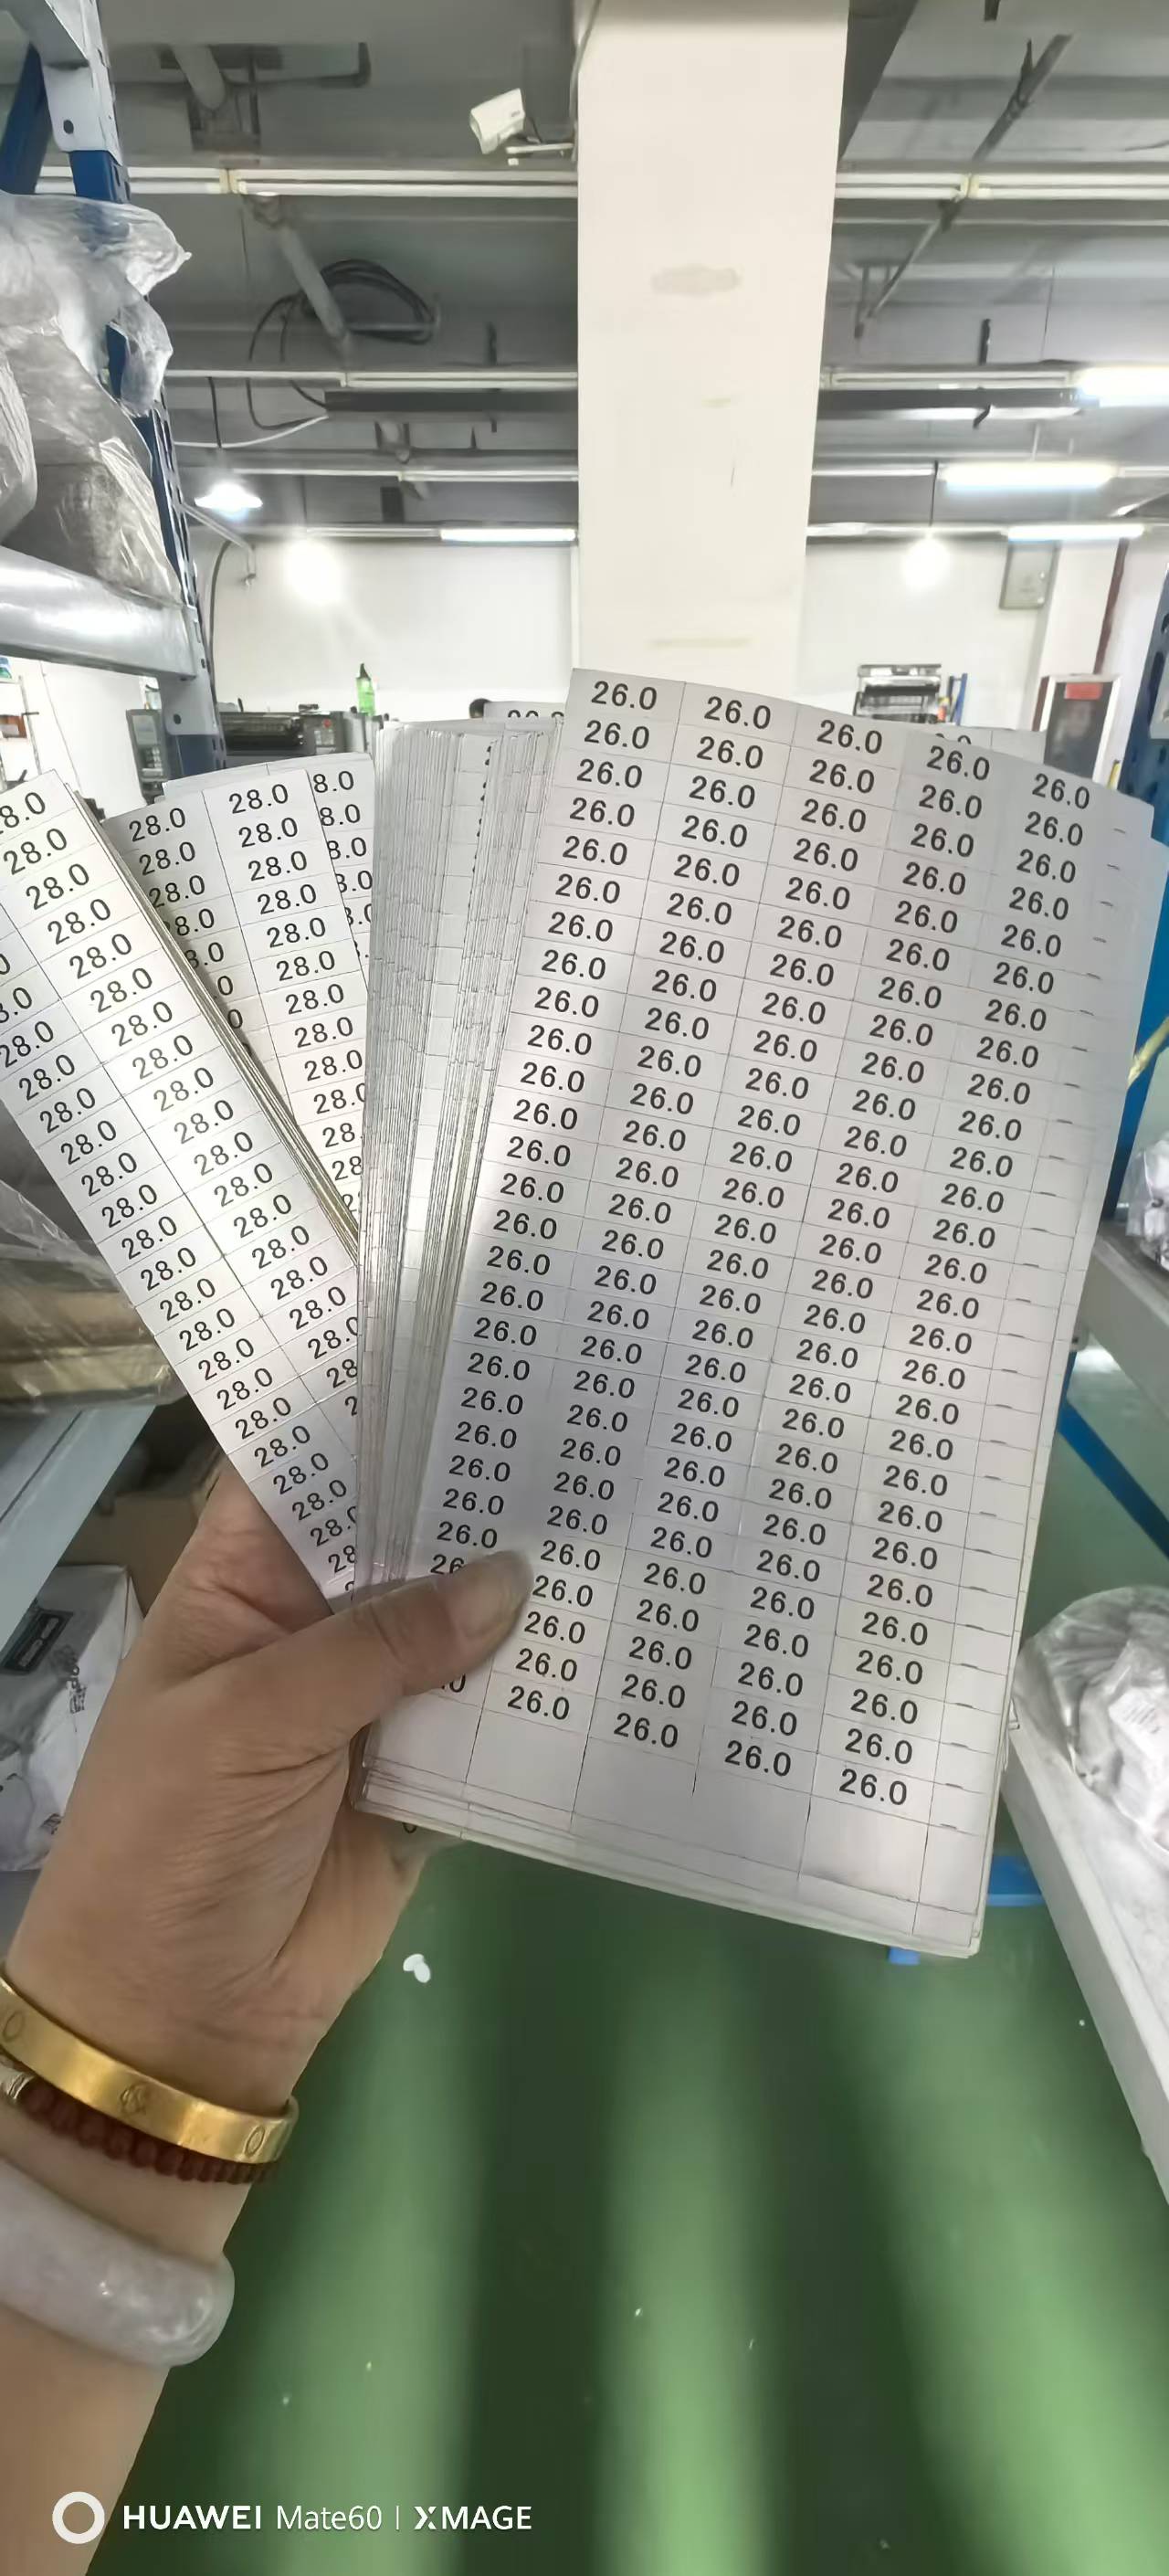 28.0
28.0
28.0
28.0
28.0
28.0 28.0
28.0 28.0
28.0 28.0
28.0 28.0
28.0 28.0
28.0 28.0
28.0 28.0
28.0 28.0
28.0 28.0
28.0 28.0
28.0
28.0
28.0
28.0
28.0
28.0
28.0 28.0
28.0 28.0
28.0 28.0
28.0
28.0
28.0
28.0
28.0
28.0
26.0 26.0 26.0 26.0 26.0
26.0 26.0 26.0 26.0 26.0
26.0 26.0 26.0 26.0 26.0
26.0 26.0 26.0 26.0 26.0
26.0 26.0 26.0 26.0 26.0
26.0 26.0 26.0 26.0 26.0
26.0 26.0 26.0 26.0 26.0
26.0 26.0 26.0 26.0 26.0
26.0 26.0 26.0 26.0 26.0
26.0 26.0 26.0 26.0 26.0
26.0 26.0 26.0 26.0 26.0
26.0 26.0 26.0 26.0 26.0
26.0 26.0 26.0 26.0 26.0
26.0 26.0 26.0 26.0 26.0
26.0 26.0 26.0 26.0 26.0
26.0 26.0 26.0 26.0 26.0
26.0 26.0 26.0 26.0 26.0
26.0 26.0 26.0 26.0 26.0
26.0 26.0 26.0 26.0 26.0
26.0 26.0 26.0 26.0 26.0
26.0 26.0 26.0 26.0 26.0
26.0 26.0 26.0 26.0 26.0
26.0 26.0 26.0 26.0 26.0
26.0 26.0 26.0 26.0 26.0
26.0 26.0 26.0 26.0
26.0 26.0 26.0 26.0
26.0 26.0 26.0 26.0
26.0 26.0 26.0 26.0
HUAWEI Mate60 | XMAGE